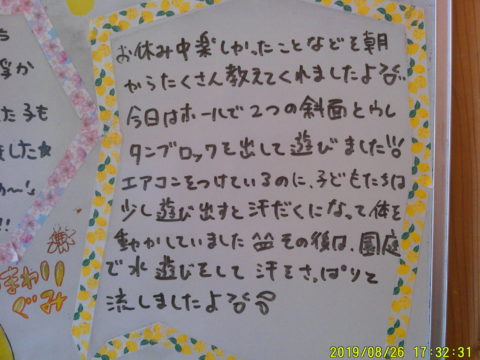 お休み中楽しかったことなどを朝
からたくさん教えてくれましたよ
今日はホールで2つの斜面とウレ
タンブロックを出して遊びました!!!
エアコンをつけているのに、子どもたちは
少し遊び出すと汗だくになって体を
動かしていました その後は、園庭
で水遊びをして汗をさっぱりと
流しましたよ
た子も
ました☆
!!
まわり
ぐみ
2019/08/26 17:32:31